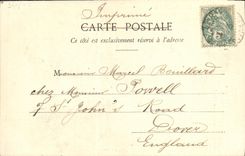 Imprimé
CARTE POSTALE
Ce côté est exclusivement réservé à l'adresse
Monsieur Marcel Bouillard
chez Monsieur Powell
7 St John's Road
Dover
England